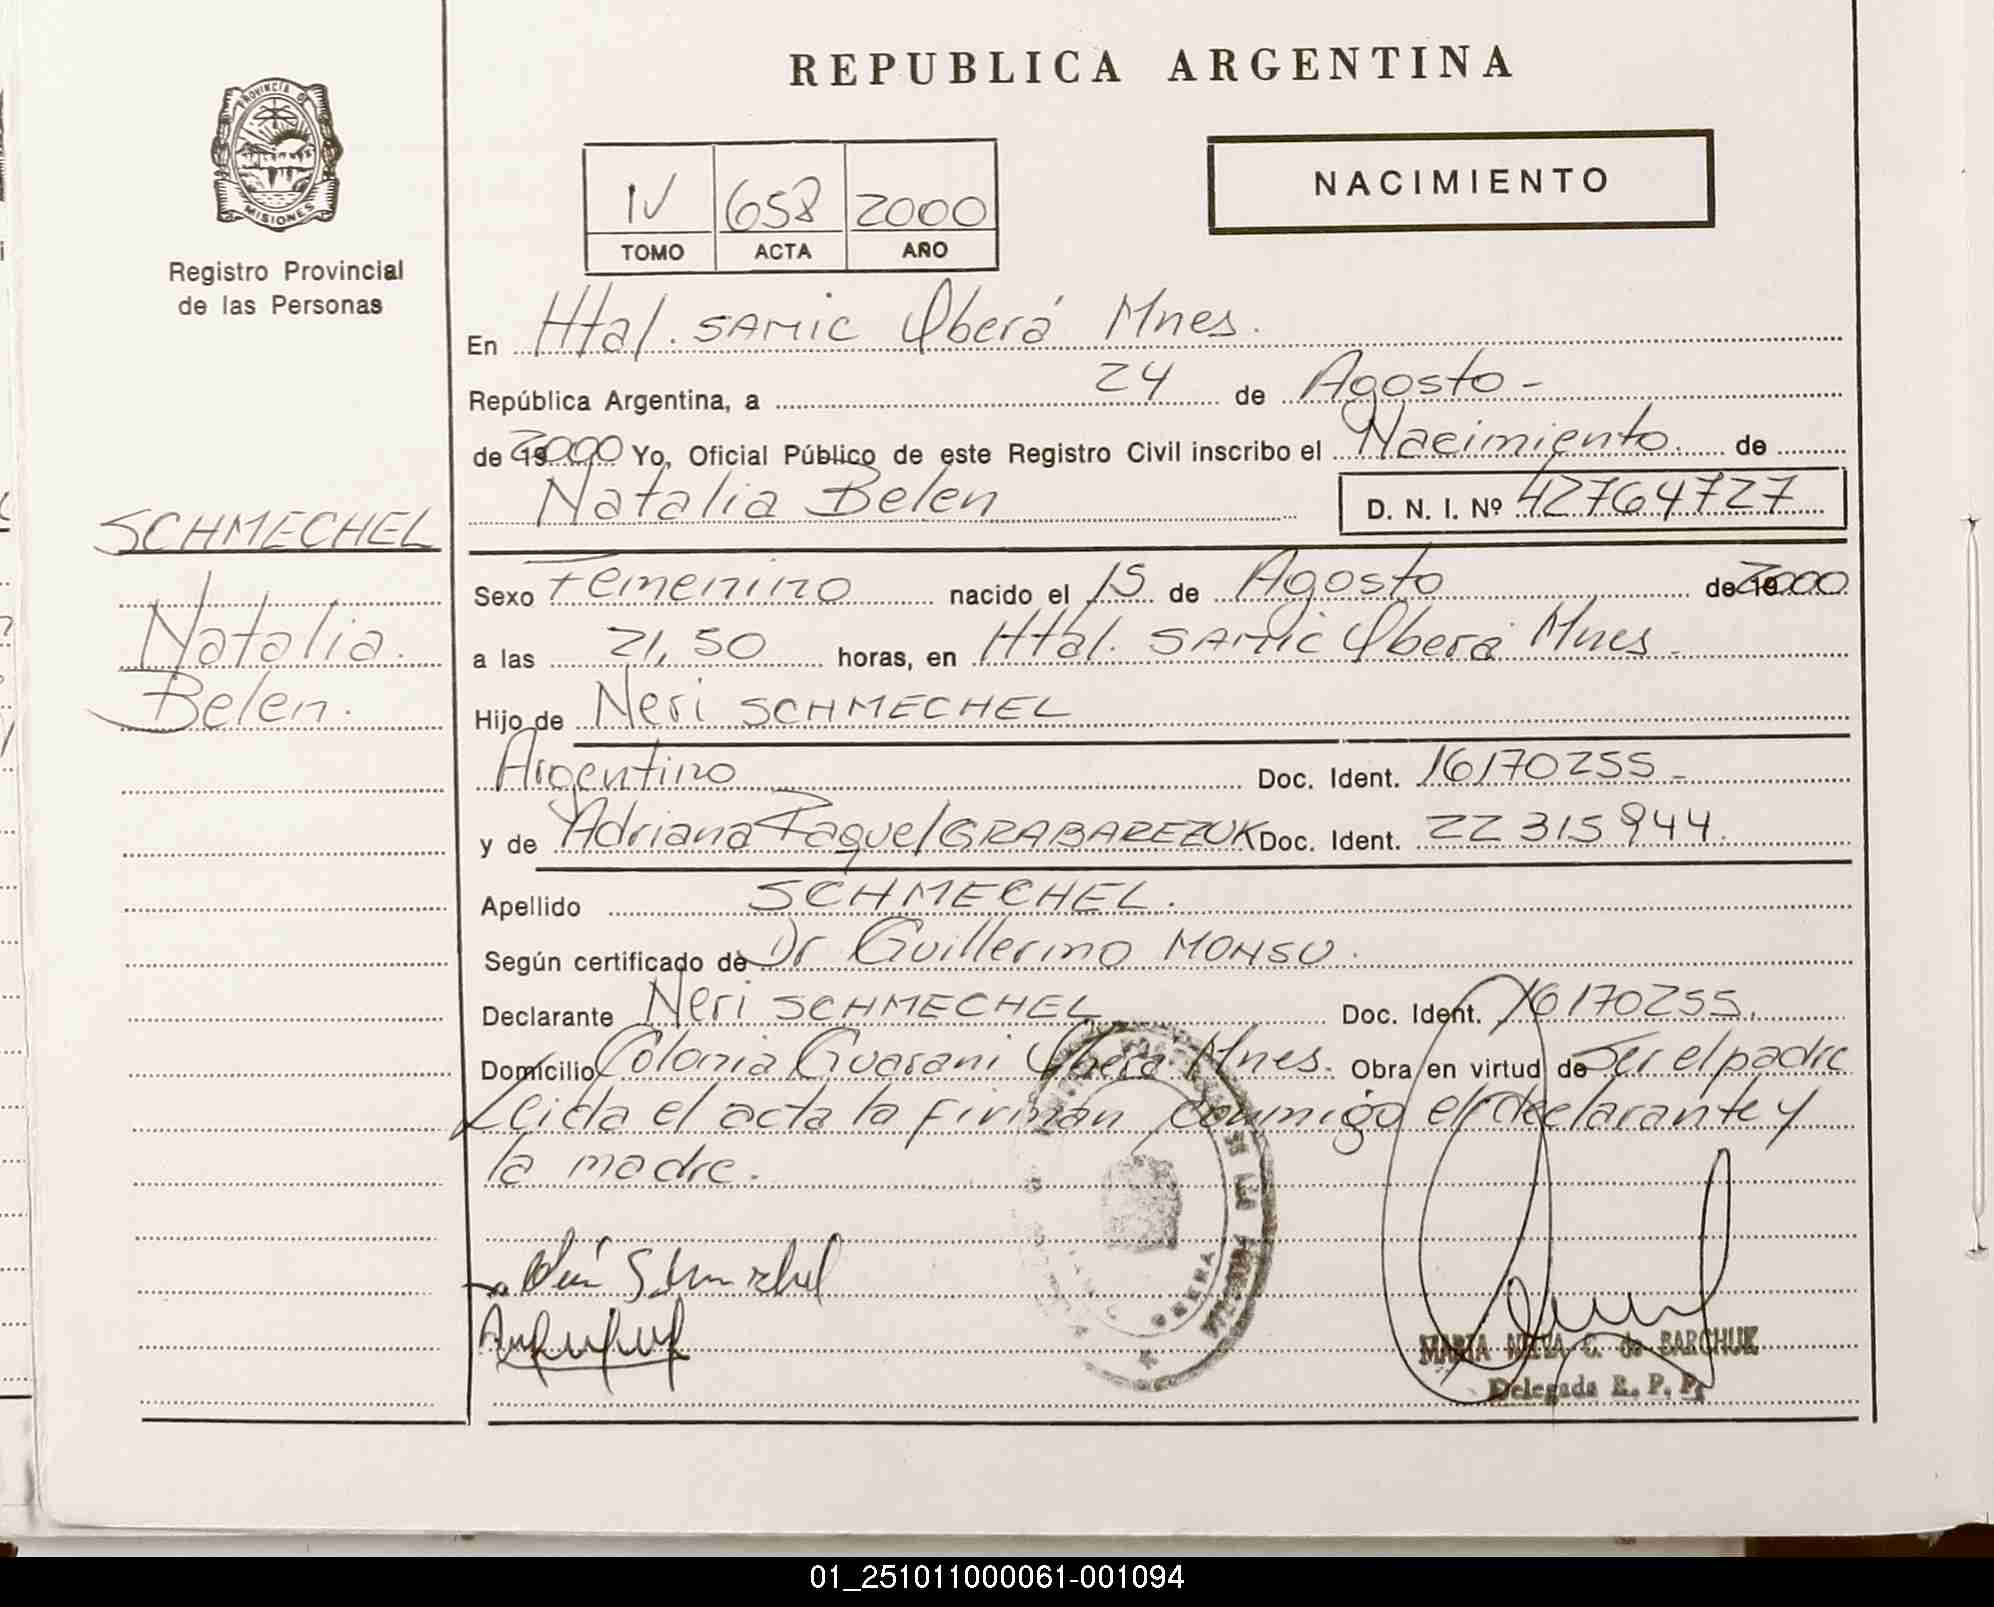 REPUBLICA ARGENTINA
PROVINCIA D
MISIONES
Registro Provincial
de las Personas
IV 658 2000
TOMO ACTA AÑO
NACIMIENTO
En Htal. SAMIC Oberá Mnes.
República Argentina, a 24 de Agosto -
de 2000 Yo, Oficial Público de este Registro Civil inscribo el Nacimiento de
Natalia Belen D. N. I. Nº 42764727
SCHMECHEL
Natalia
Belen.
Sexo Femenino nacido el 15 de Agosto de 2000
a las 21,50 horas, en Htal. SAMIC Oberá Mnes.
Hijo de Neri SCHMECHEL
Argentino Doc. Ident. 16170255 -
y de Adriana Raquel GRABAREZUK Doc. Ident. 22315944.
Apellido SCHMECHEL.
Según certificado de Dr Guillermo MONSU.
Declarante Neri SCHMECHEL Doc. Ident. 16170255.
Domicilio Colonia Guarani Oberá Mnes. Obra en virtud de Ser el padre
Leida el acta la firman conmigo el declarante y
la madre.
OBERA
MARIA C. de BARCHUK
Delegada R. P. P.
01_251011000061-001094